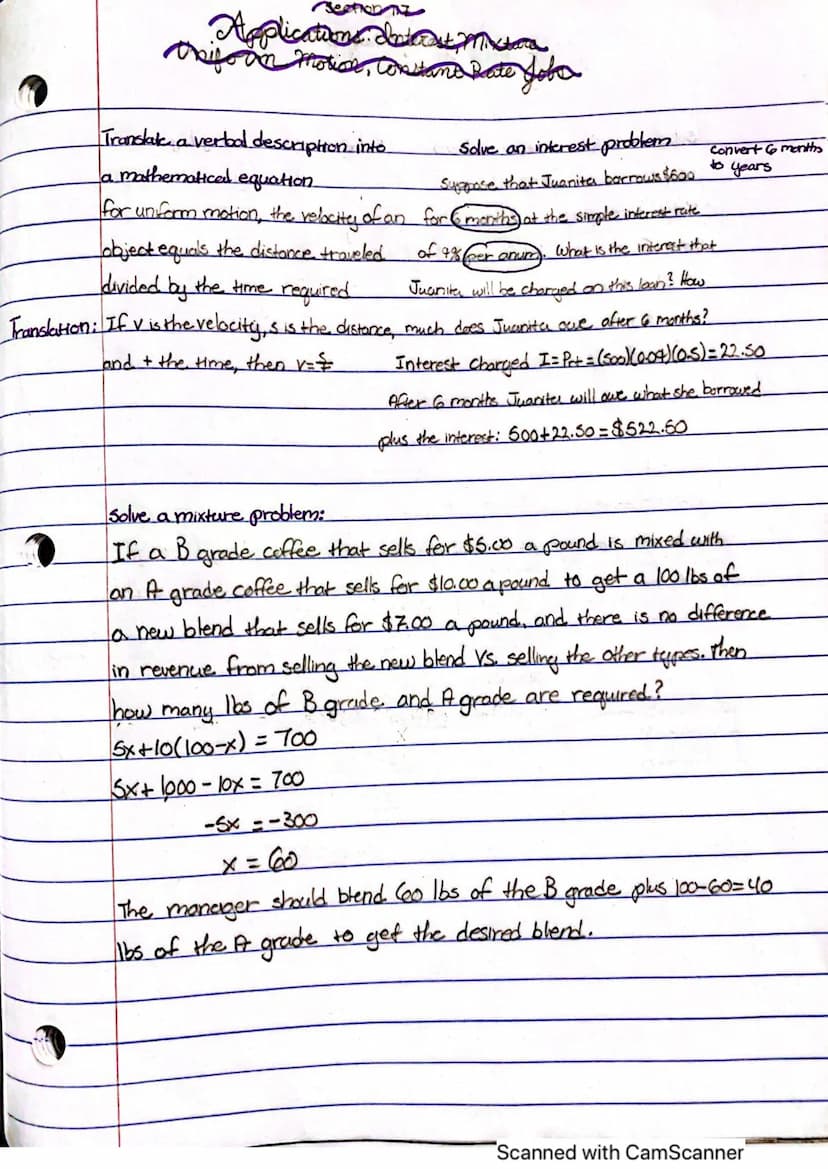 Section 1.7
Applications: Interest, Mixture
Uniform Motion, Constant Rate Jobs
Translate a verbal description into
a mathematical equation
for uniform motion, the velocity of an
object equals the distance traveled
divided by the time required
Translation: If v is the velocity, s is the distance,
and t the time, then v=s/t
Solve an interest problem
convert 6 months
to years
Suppose that Juanita borrows $500
for 6 months at the simple interest rate
of 9% per anum. What is the interest that
Juanita will be charged on this loan? How
much does Juanita owe after 6 months?
Interest Charged I=Prt=(500)(0.09)(0.5)=22.50
After 6 months Juanita will owe what she borrowed
plus the interest: 500+22.50=$522.50
Solve a mixture problem:
If a B grade coffee that sells for $5.00 a pound is mixed with
an A grade coffee that sells for $10.00 a pound to get a 100 lbs of
a new blend that sells for $7.00 a pound, and there is no difference
in revenue from selling the new blend vs. selling the other types. Then
how many lbs of B grade and A grade are required?
5x+10(100-x) = 700
5x+1,000-10x = 700
-5x = -300
x = 60
The maneger should blend 60 lbs of the B grade plus 100-60=40
lbs of the A grade to get the desired blend.
Scanned with CamScanner